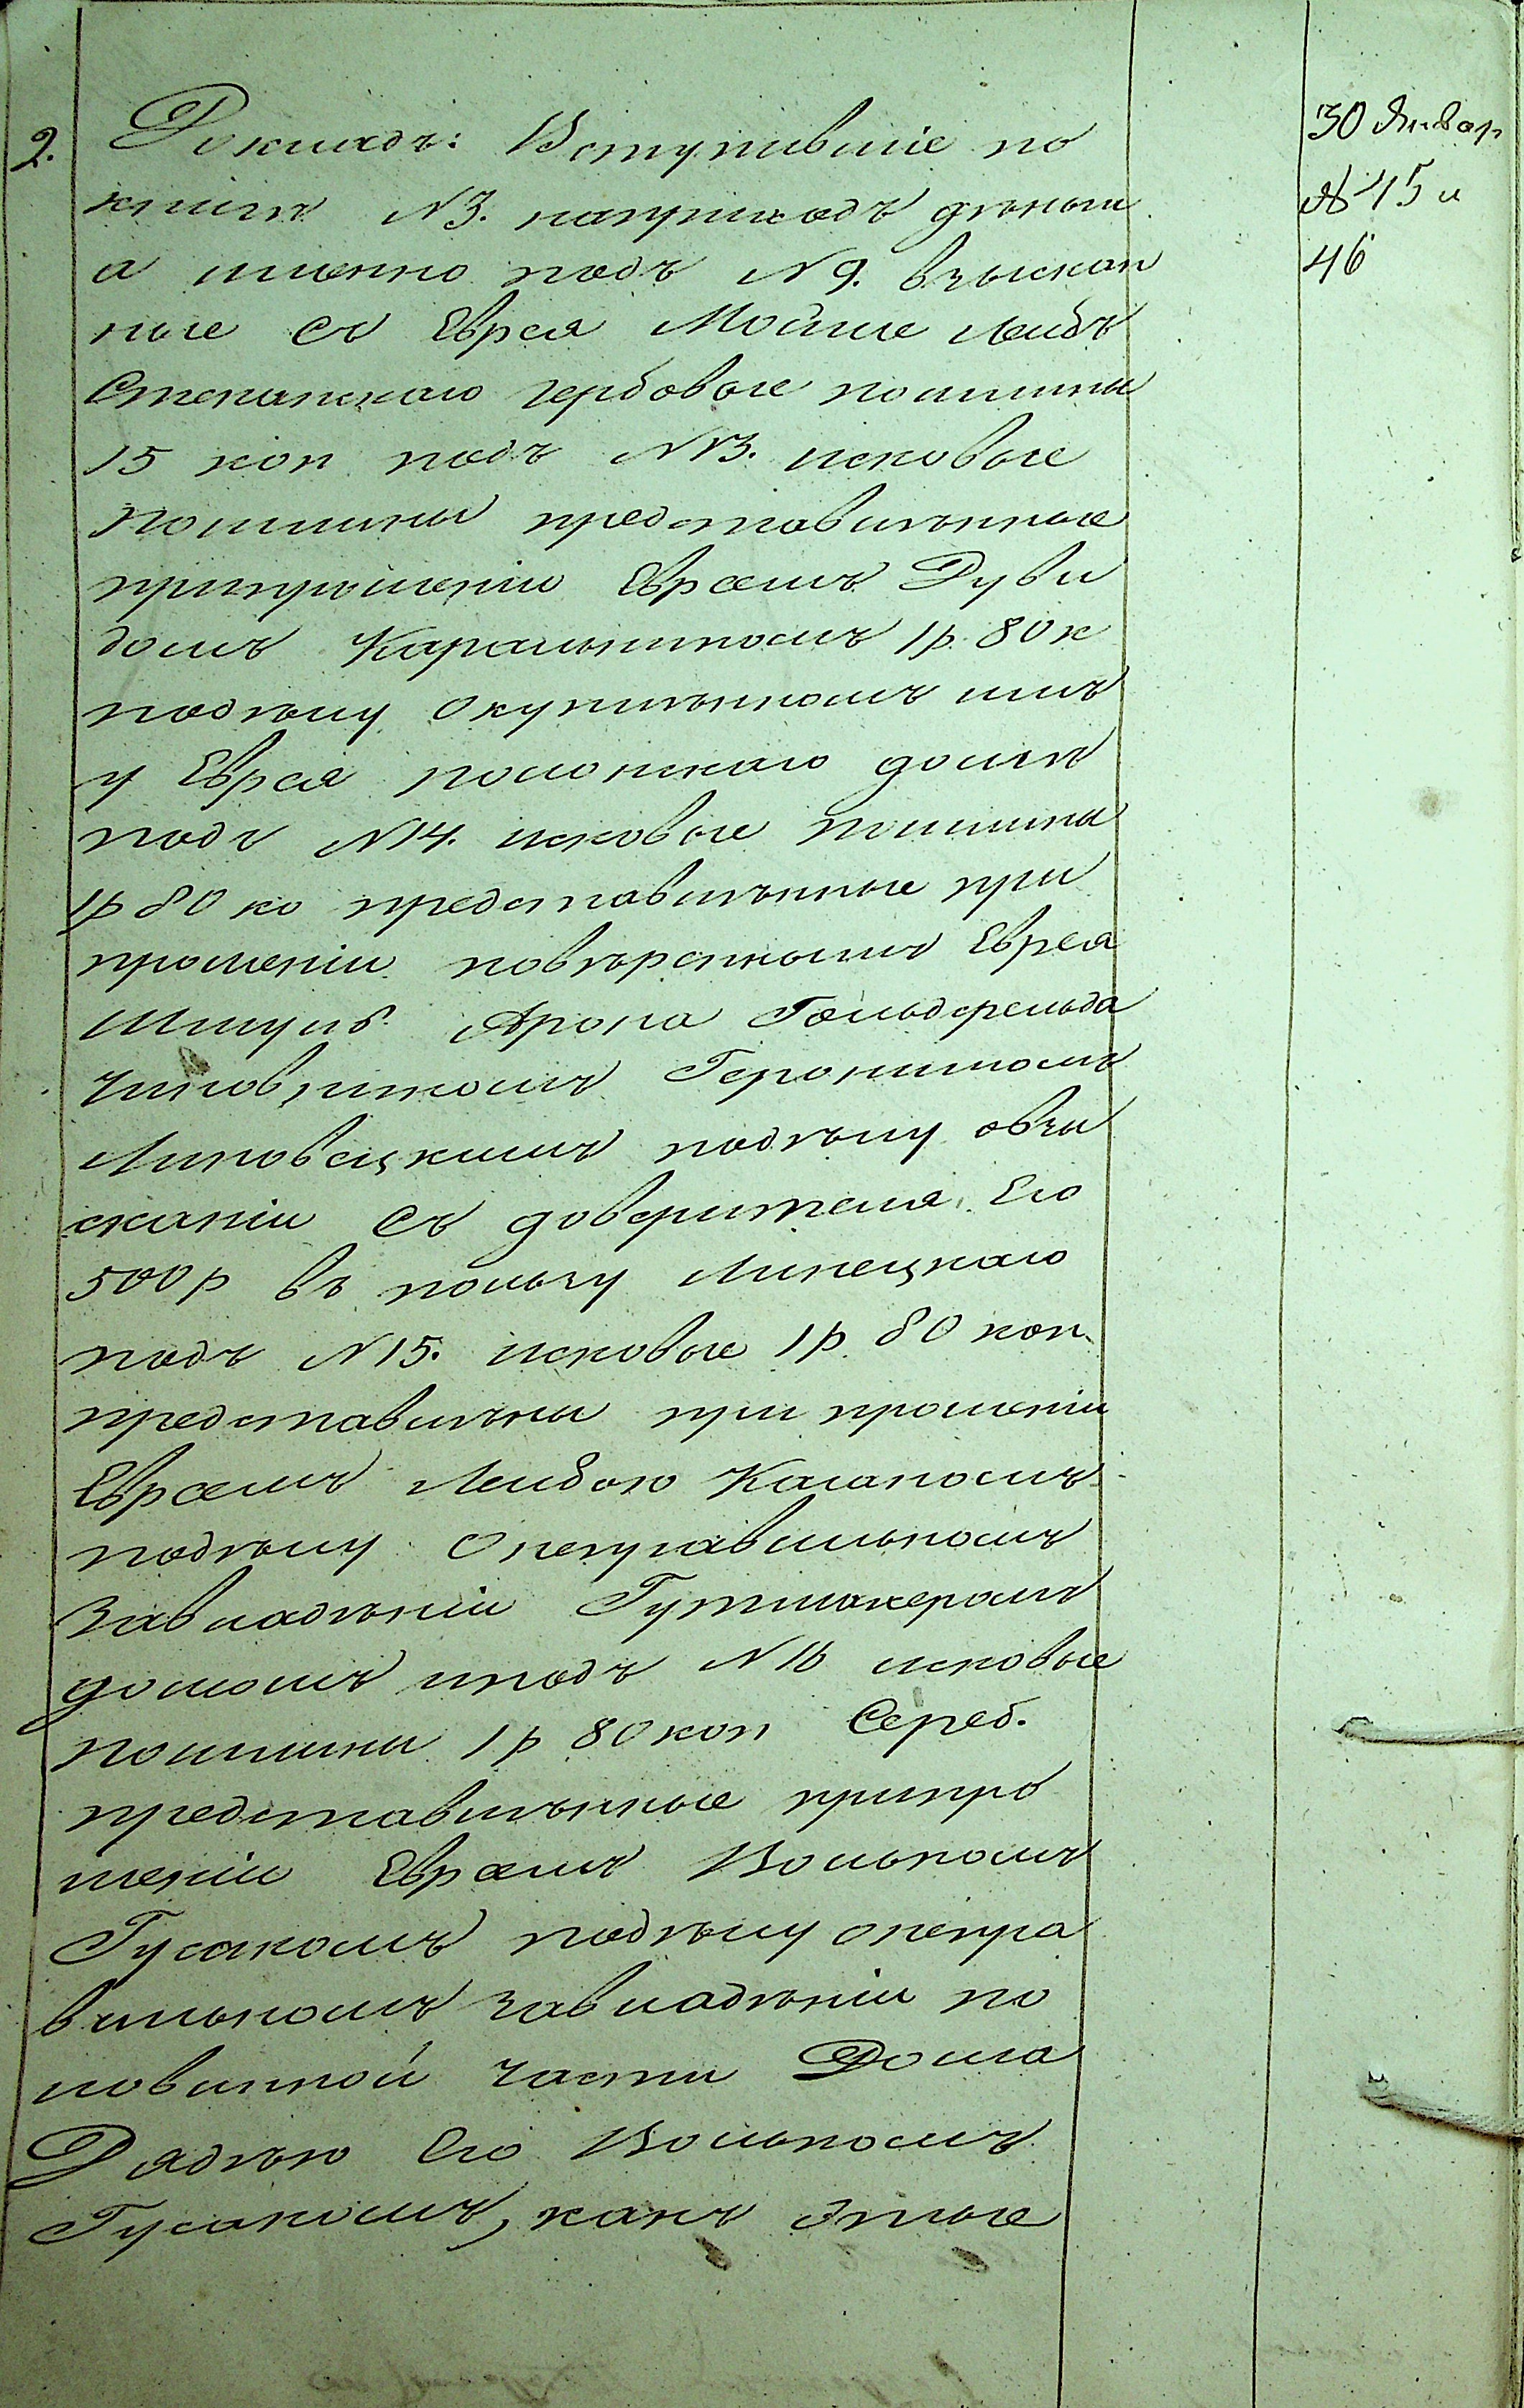 2.
Докладъ: Вступившіе по
книгѣ №3. наприходъ денги
а именно подъ №9. взыскан
ные съ Еврея Мойше Лейбъ
гербовые пошлины
15 коп подъ №13. исковые
пошлины представлѣнные
припрошеніи Евреемъ Дуви
домъ Каральникомъ 1 р. 80 к
подѣлу Окуплѣнномъ имъ
у Еврея полонскаго домѣ
подъ №14. исковые пошлины
1 р 80 ко представлѣнные при
прошеніи повѣреннымъ Еврея
Шмуля Арона Гольдфельда
чиновникомъ Геронимомъ
Липовецкимъ подѣлу овзы
сканіи съ доверителя Его
500 р въ пользу Липецкаго
подъ №15. исковые 1 р 80 коп
представлѣны при прошеніи
Евреемъ Лейбою Каганомъ
подѣлу Онеправильномъ
Завладѣніи Гутмахеромъ
домомъ иподъ №16 исковые
пошлины 1 р 80 коп Сереб.
представлѣнные припро
шеніи Евреемъ Волькомъ
Гусакомъ подѣлу онепра
вильномъ завладѣніи по
ловинной части Дома
Дядѣю Его Волькомъ
Гусакомъ, какъ этые
30 Январ
№ 45 и
46